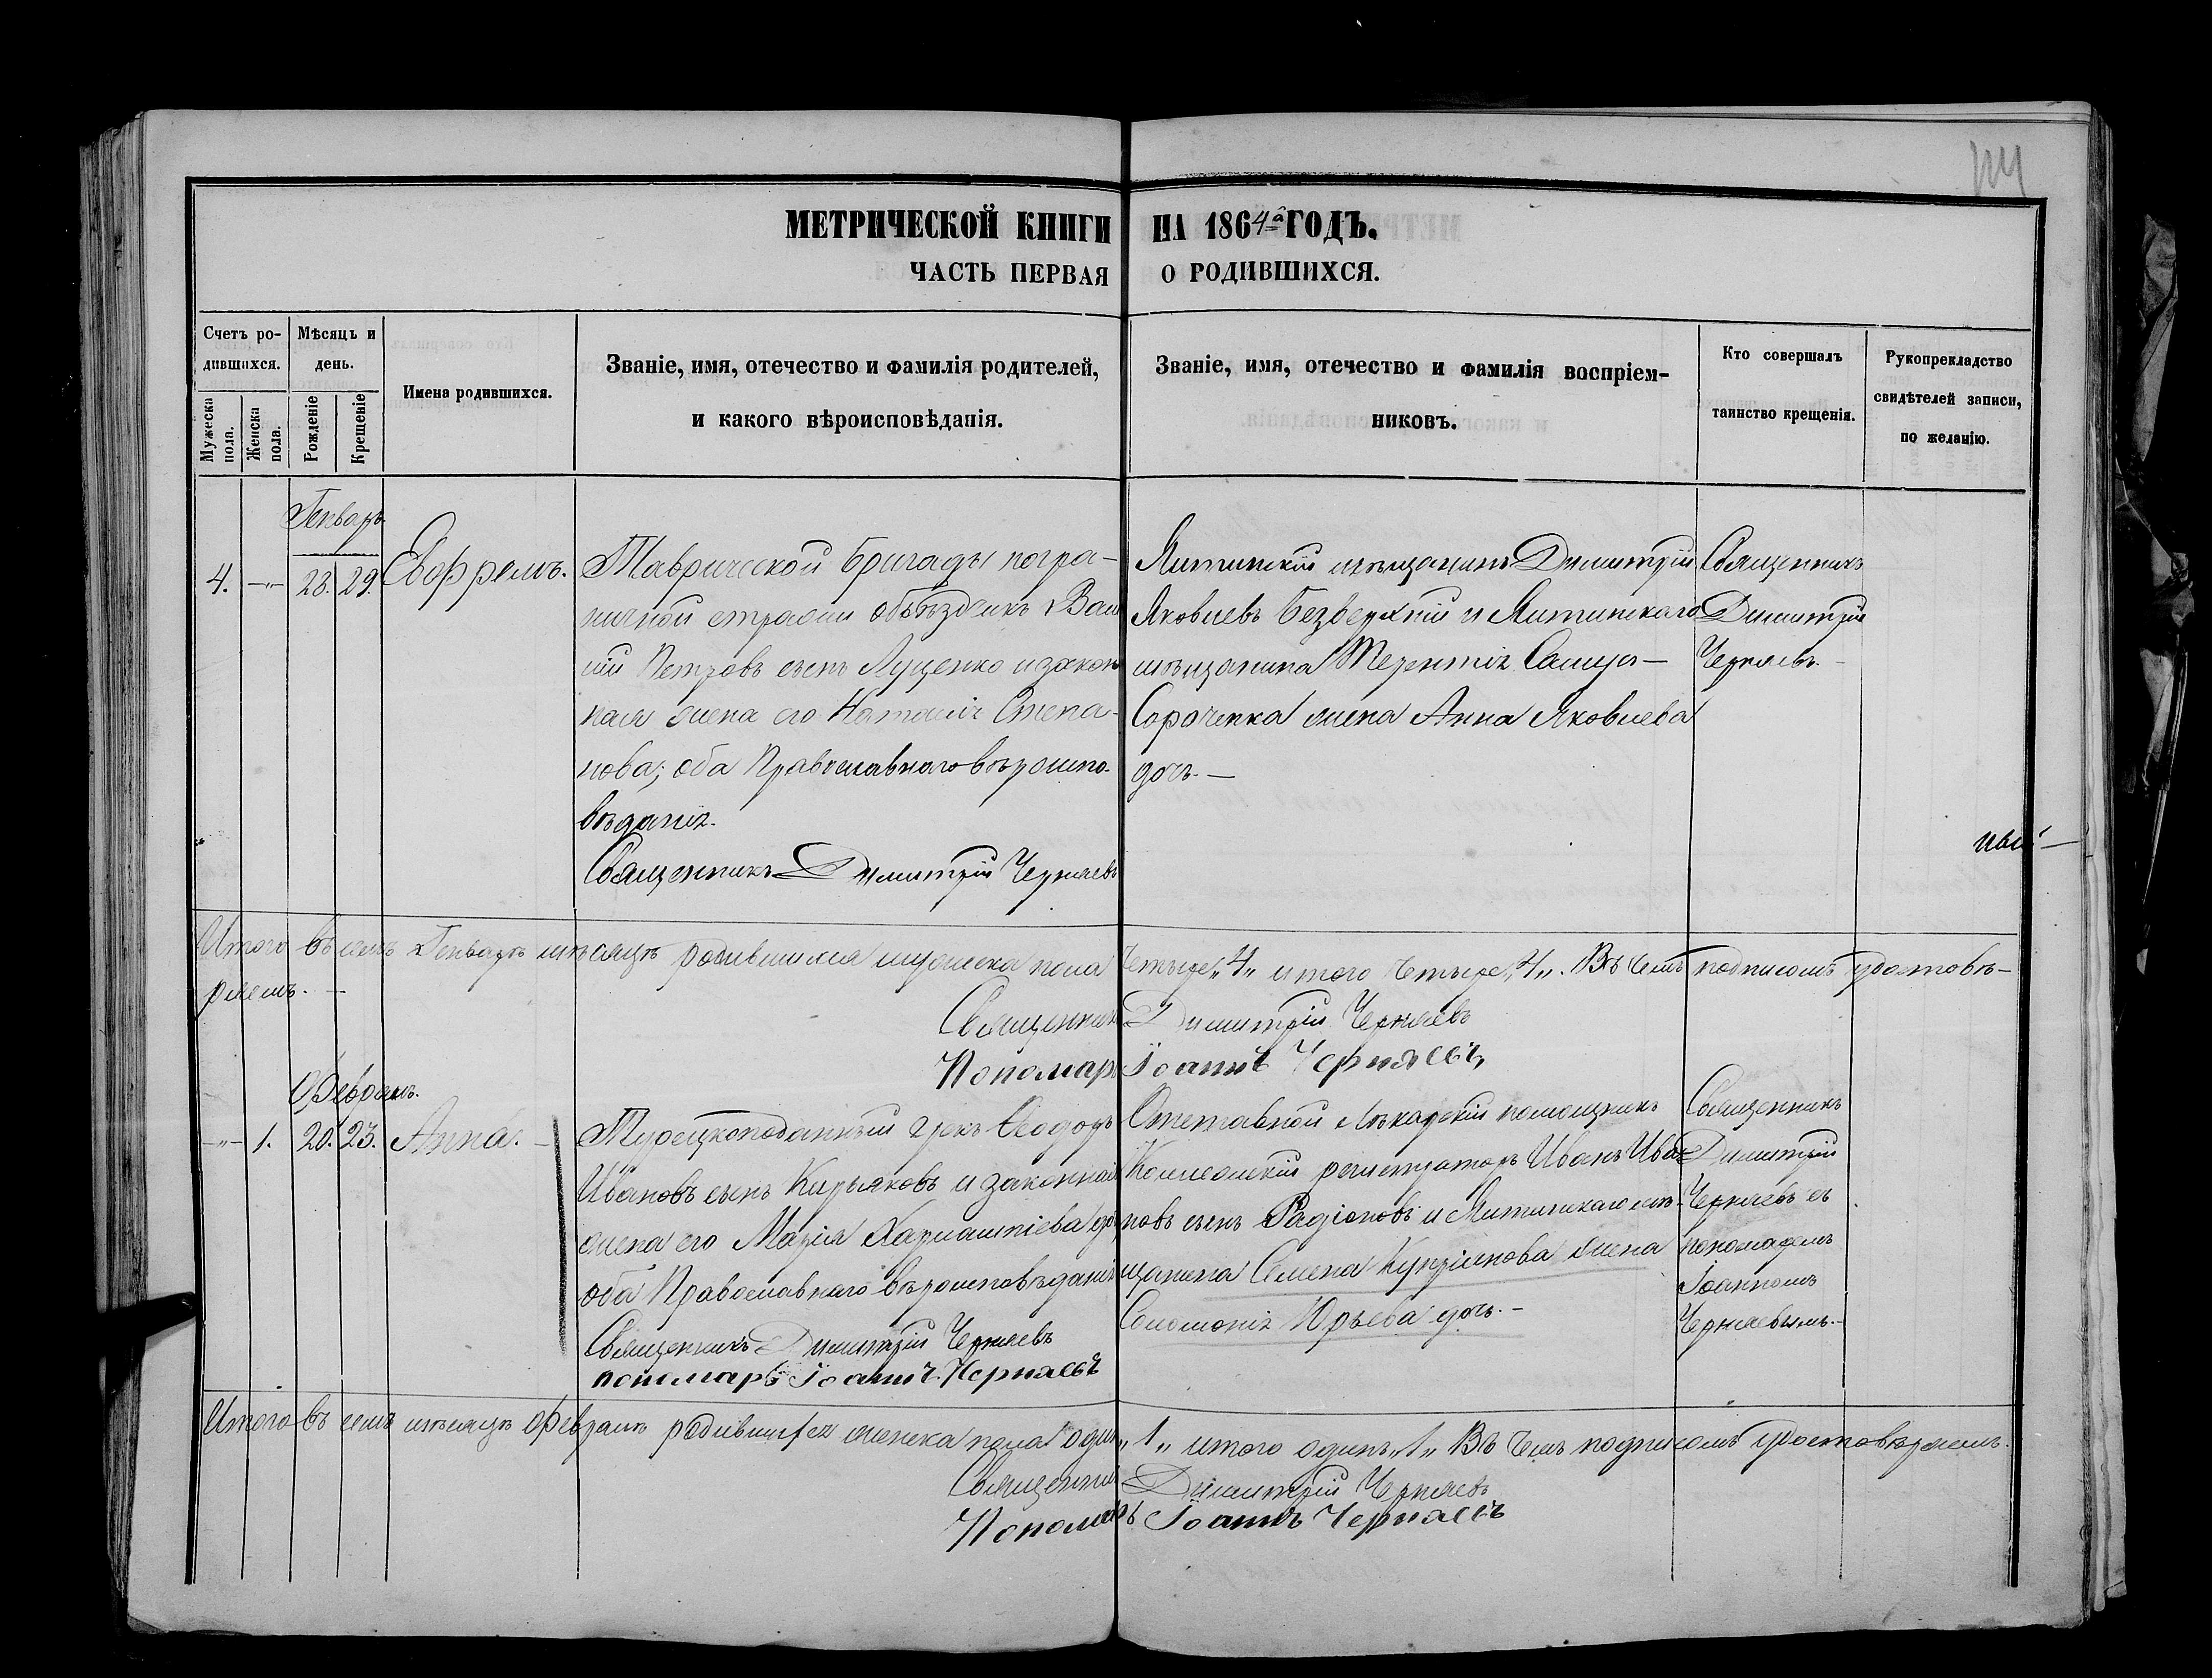 114
МЕТРИЧЕСКОЙ КНИГИ НА 1864й ГОДЪ.
ЧАСТЬ ПЕРВАЯ О РОДИВШИХСЯ.
Счетъ ро-
дившихся.
Мужеска пола.
Женска пола.
Мѣсяцъ и
день.
Рожденіе
Крещеніе
Имена родившихся.
Званіе, имя, отечество и фамилія родителей,
и какого вѣроисповѣданія.
Званіе, имя, отечество и фамилія воспріем-
никовъ.
Кто совершалъ
таинство крещенія.
Рукоприкладство
свидѣтелей записи,
по желанію.
Генварь
4. —"— 28. 29. Евфремъ.
Таврической бригады погра-
ничной стражи объѣздчикъ Васи
лій Петровъ сынъ Луценко и закон
ная жена его Наталія Степа-
нова; оба Православнаго вѣроиспо-
вѣданія.
Священникъ Димитрій Черняевъ
Ялтинскій мѣщанинъ Димитрій
Яковлевъ Безверхній и Ялтинскаго
мѣщанина Терентія
Сороченка жена Анна Яковлева
дочь. —
Священникъ
Димитрій
Черняевъ. —
Итого въ семъ Генварѣ мѣсяцѣ родившихся мужеска пола четыре „4„ итого четыре „4„. Въ чемъ подписомъ удостовѣ-
ряемъ. —
Священникъ Димитрій Черняевъ
Пономарь Іоаннъ Черняевъ
Февраль.
—"— 1. 20. 23. Анна. —
Турецкоподанный грекъ Ѳеодоръ
Ивановъ сынъ Кирьяковъ и законная
жена его Марія Харлампіева
оба Православнаго вѣроисповѣданія
Священникъ Димитрій Черняевъ
пономарь Іоаннъ Черняевъ
Отставной лѣкарскій помощникъ
Коллежскій регистраторъ Иванъ Ива
новъ сынъ Радіоновъ и Ялтинскаго мѣ-
щанина Семена Купріянова жена
Соломонія Юрьева дочь. —
Священникъ
Димитрій
Черняевъ съ
пономаремъ
Іоанномъ
Черняевымъ. —
Итого въ семъ мѣсяцѣ Февралѣ родившихся женска пола одинъ „1„ итого одинъ „1„ Въ чемъ подписомъ удостовѣряемъ.
Священникъ Димитрій Черняевъ
Пономарь Іоаннъ Черняевъ